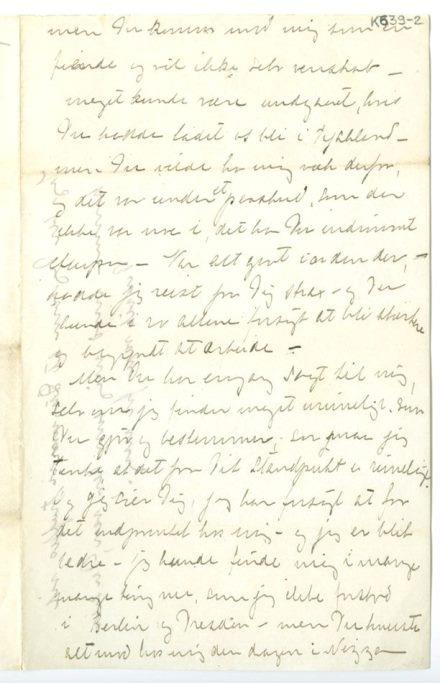 K639-2
men Du kommer mod mig som en
fiende og vil ikke selv venskab –
meget kunde være undgaaet, hvis
Du hadde ladet os bli i Tyskland –
men Du vilde ha mig væk derfra,
og det var under et paaskud, som der
ikke var noe i, det har Du indrømmet
– Var alt gaat i orden der, –
hadde jeg reist fra Dig strax – og Du
kunde i ro allene forsøgt at bli stærkere
og begyndt at arbeide –
Men Du har engang sagt til mig,
selv om jeg finder meget urimeligt som
Du gjør og bestemmer – saa maa jeg
tænke at det fra Dit Standpunkt er rimeligt
Og jeg sier Dig, jeg har forsøgt at faa
det indprentet hos mig – og jeg er blit
bedre – jeg kunde finde mig i mange
mange ting nu, som jeg ikke forstod
i Berlin og Dresden – men Du knuste
alt mod hos mig den dagen i Nizza